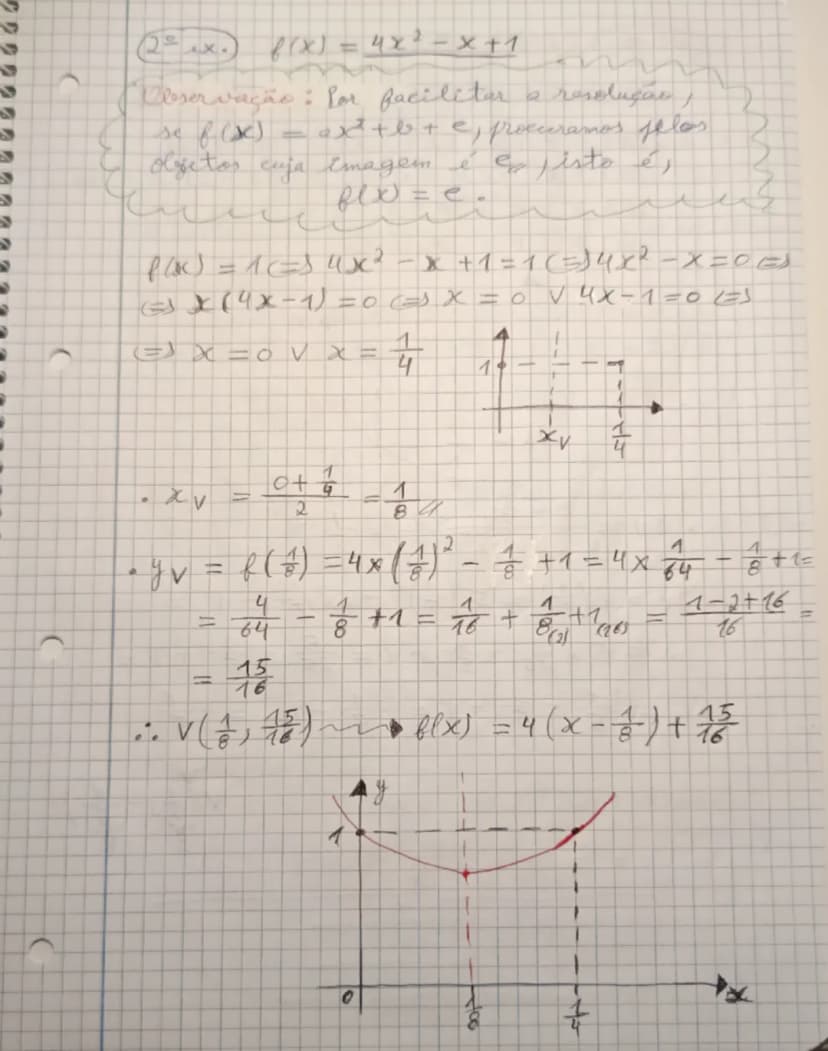 2º ex. f(x) = 4x² - x + 1
Observação: Por facilitar a resolução,
se f(x) = ax² + b + c, procuramos pelos
objetos cuja imagem é c, isto é,
f(x) = c.
f(x) = 1 (=) 4x² - x + 1 = 1 (=) 4x² - x = 0 (=)
(=) x(4x - 1) = 0 (=) x = 0 ∨ 4x - 1 = 0 (=)
(=) x = 0 ∨ x = 1/4
1
xᵥ 1/4
· xᵥ = (0 + 1/4)/2 = 1/8 //
· yᵥ = f(1/8) = 4 × (1/8)² - 1/8 + 1 = 4 × 1/64 - 1/8 + 1 =
= 4/64 - 1/8 + 1 = 1/16 + 1/8 (2) + 1 (16) = (1 - 2 + 16)/16 =
= 15/16
∴ V(1/8, 15/16) ⇝ f(x) = 4(x - 1/8) + 15/16
y
1
0 1/8 1/4 x